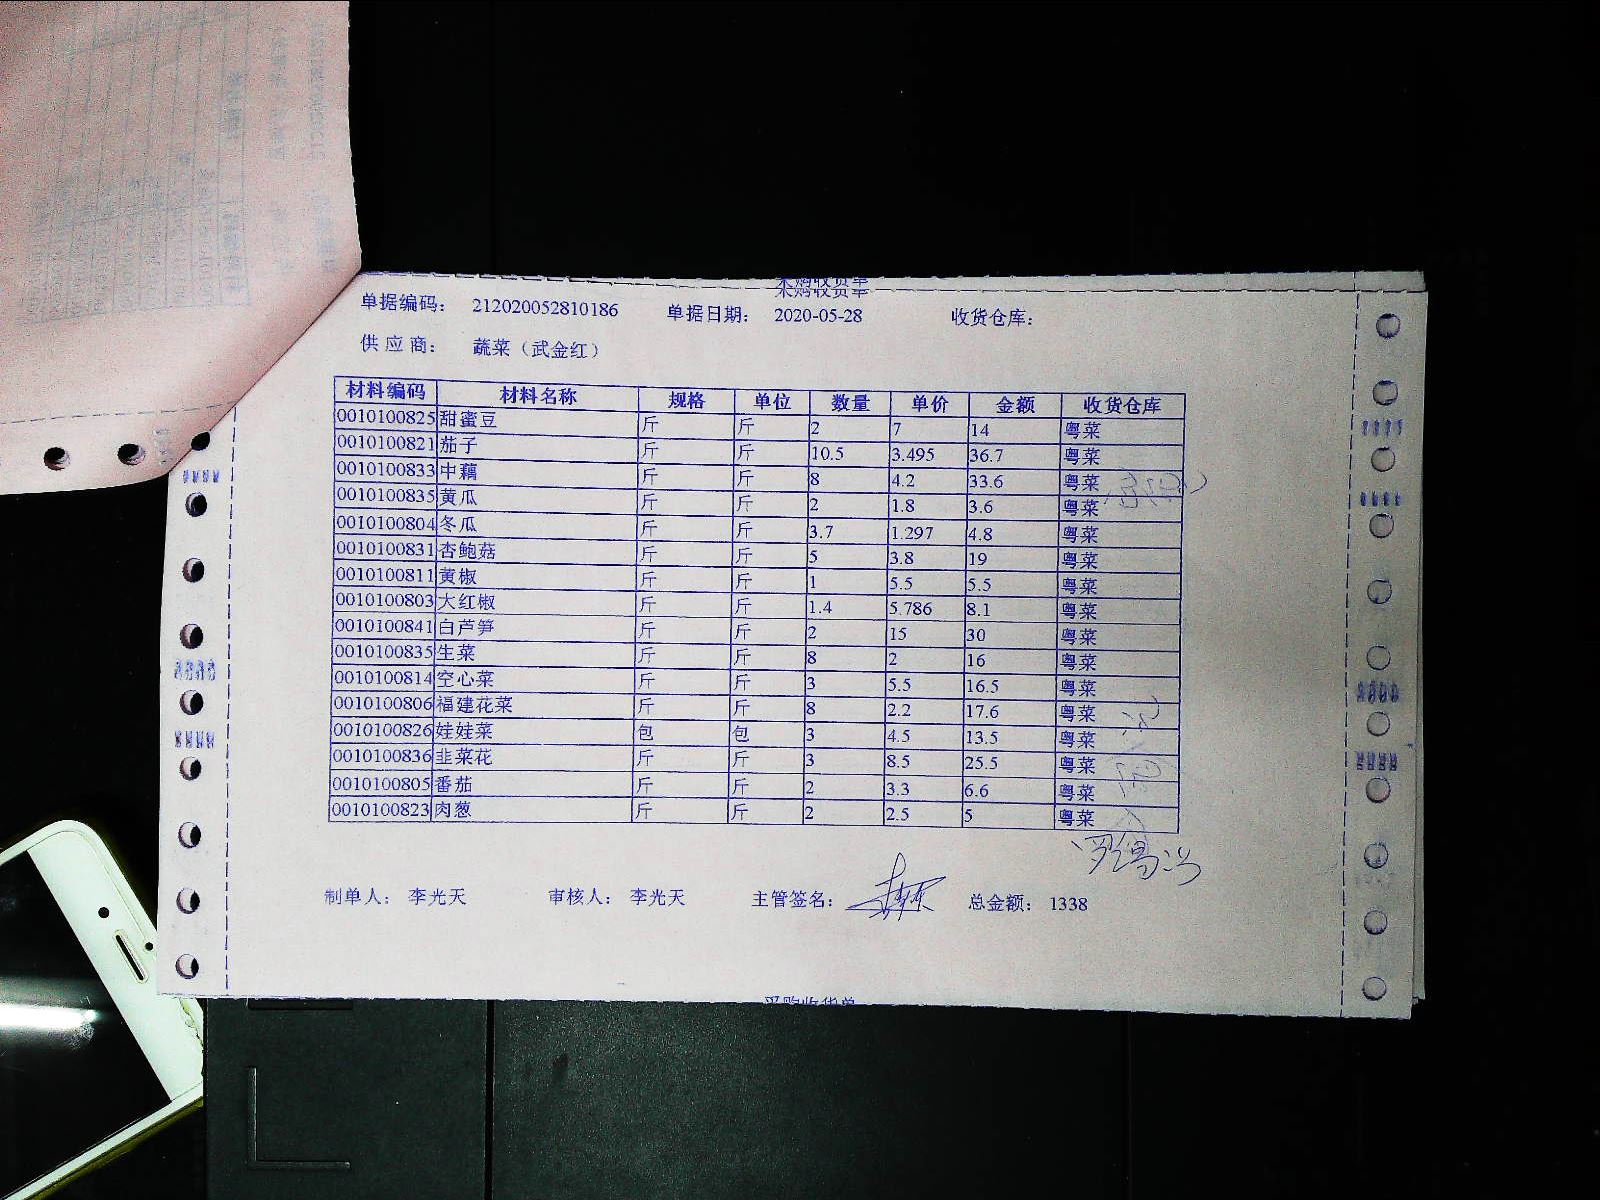 采购收货单
单据编码： 212020052810186 单据日期： 2020-05-28 收货仓库：
供应商： 蔬菜（武金红）
材料编码 材料名称 规格 单位 数量 单价 金额 收货仓库
0010100825 甜蜜豆 斤 斤 2 7 14 粤菜
0010100821 茄子 斤 斤 10.5 3.495 36.7 粤菜
0010100833 中藕 斤 斤 8 4.2 33.6 粤菜
0010100835 黄瓜 斤 斤 2 1.8 3.6 粤菜
0010100804 冬瓜 斤 斤 3.7 1.297 4.8 粤菜
0010100831 杏鲍菇 斤 斤 5 3.8 19 粤菜
0010100811 黄椒 斤 斤 1 5.5 5.5 粤菜
0010100803 大红椒 斤 斤 1.4 5.786 8.1 粤菜
0010100841 白芦笋 斤 斤 2 15 30 粤菜
0010100835 生菜 斤 斤 8 2 16 粤菜
0010100814 空心菜 斤 斤 3 5.5 16.5 粤菜
0010100806 福建花菜 斤 斤 8 2.2 17.6 粤菜
0010100826 娃娃菜 包 包 3 4.5 13.5 粤菜
0010100836 韭菜花 斤 斤 3 8.5 25.5 粤菜
0010100805 番茄 斤 斤 2 3.3 6.6 粤菜
0010100823 肉葱 斤 斤 2 2.5 5 粤菜
制单人： 李光天 审核人： 李光天 主管签名： 总金额： 1338
采购收货单